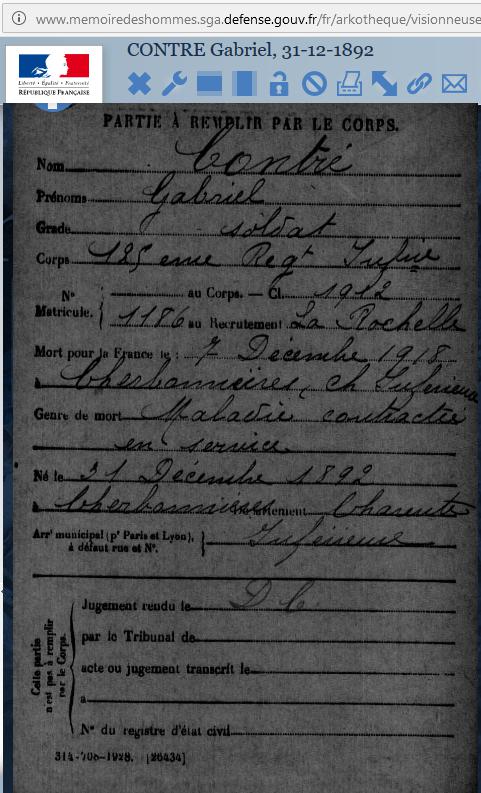 www.memoiredeshommes.sga.defense.gouv.fr/fr/arkotheque/visionneuse
CONTRE Gabriel, 31-12-1892
Liberté • Égalité • Fraternité
RÉPUBLIQUE FRANÇAISE
PARTIE À REMPLIR PAR LE CORPS.
Nom Contré
Prénoms Gabriel
Grade soldat
Corps 185 eme Regt Infrie
N° au Corps. — Cl. 1912
Matricule. 1186 au Recrutement La Rochelle
Mort pour la France le : 7 Décembre 1918
à Cherbonnières, ch Inférieure
Genre de mort Maladie contractée
en service
Né le 31 Décembre 1892
à Cherbonnières Département Charente
Arrt municipal (pr Paris et Lyon),
à défaut rue et N°. Inférieure
Cette partie
n'est pas à remplir
par le Corps.
Jugement rendu le D C
par le Tribunal de
acte ou jugement transcrit le
à
N° du registre d'état civil
314-708-1928. [26434]